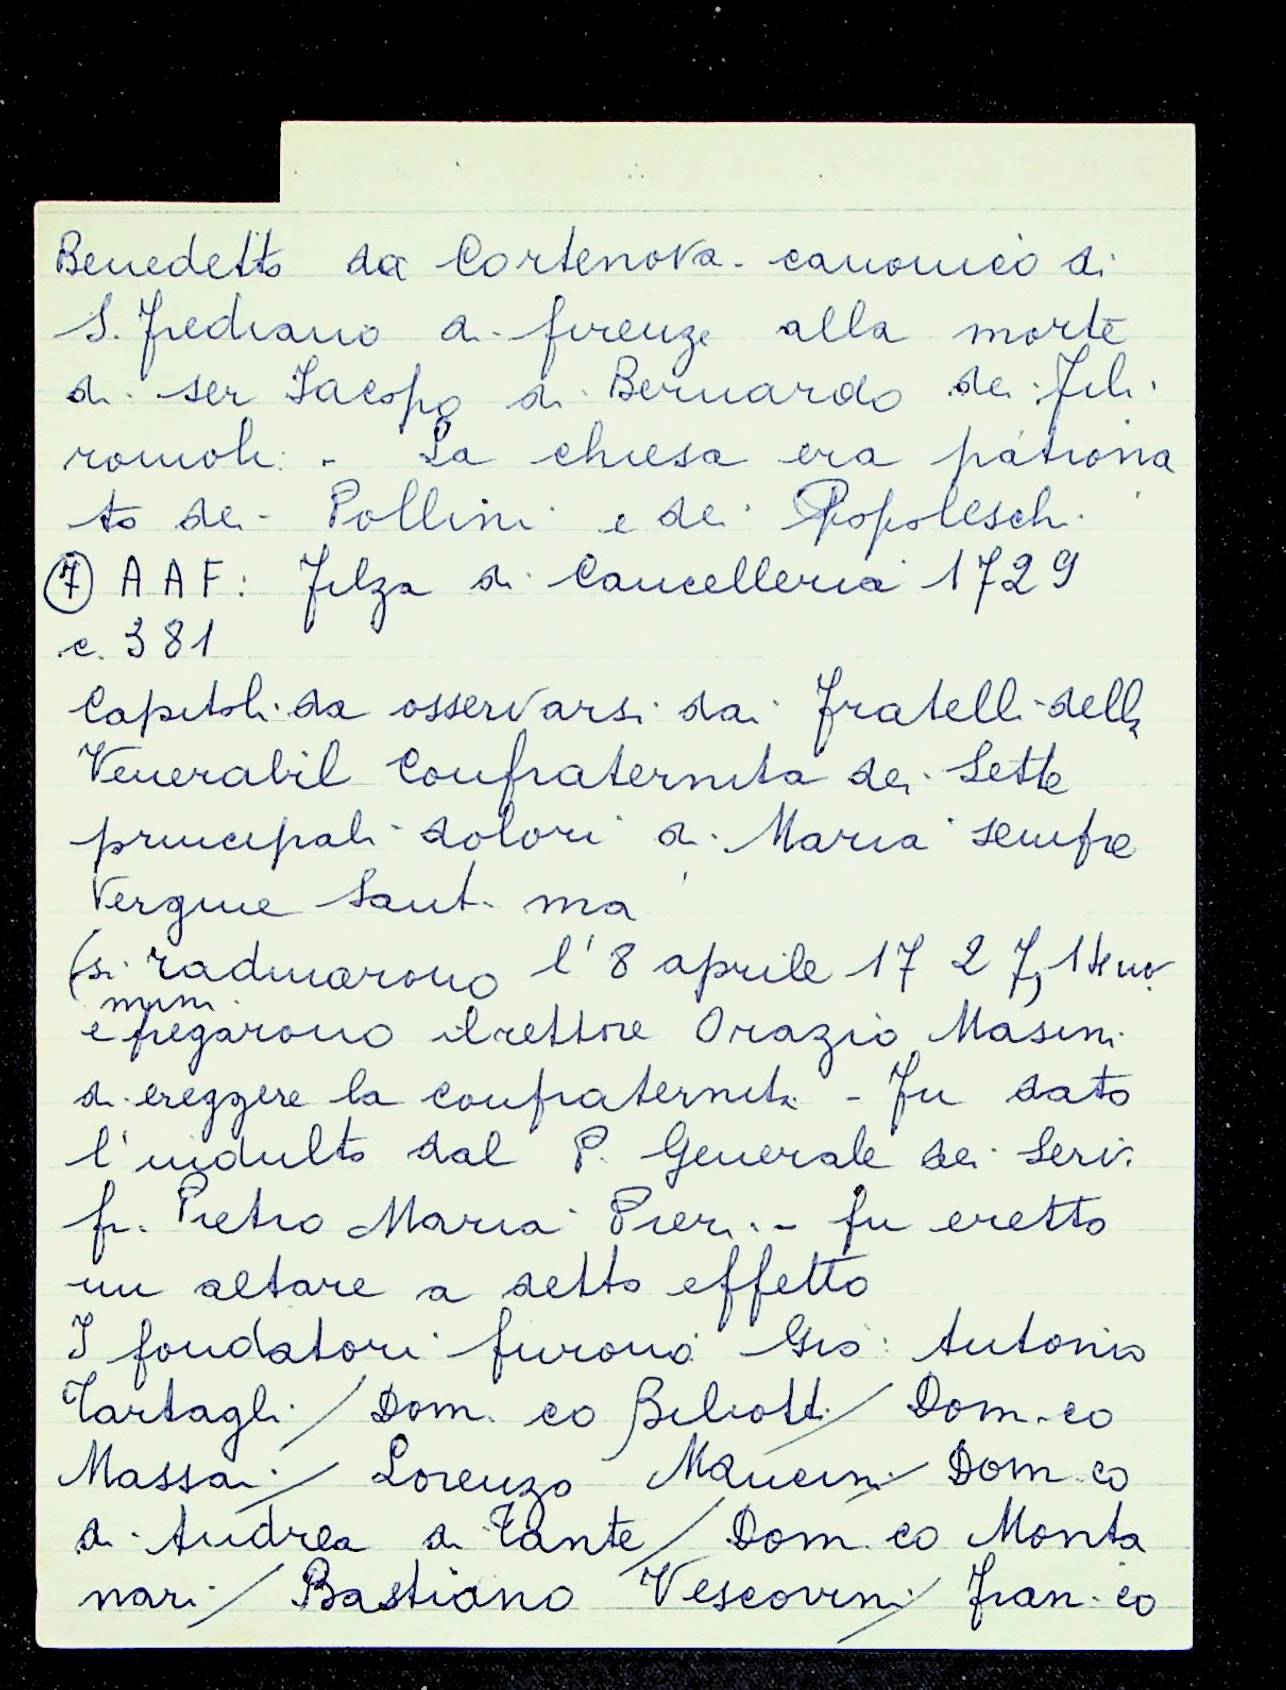 Benedetto da Cortenova - canonico di
S. Frediano di Firenze alla morte
di ser Iacopo di Bernardo dei Fili
romoli - La chiesa era patrona
to dei Pollini e dei Popoleschi
⑦ A A F: Filza di Cancelleria 1729
c. 381
Capitoli da osservarsi dai fratelli della
Venerabil Confraternita dei Sette
principali dolori di Maria sempre
Vergine Sant. ma
(si radunarono l'8 aprile 1727,
e pregarono il rettore Orazio Masini
di ereggere la confraternita - Fu dato
l'indulto dal P. Generale dei Servi
fr. Pietro Maria Pieri. - fu eretto
un altare a detto effetto
I fondatori furono Gio: Antonio
Tartagli / Dom. co Biliotti / Dom. co
Massai / Lorenzo Mancini / Dom. co
di Andrea di Tante / Dom. co Monta
nari / Bastiano Vescovini / Fran. co